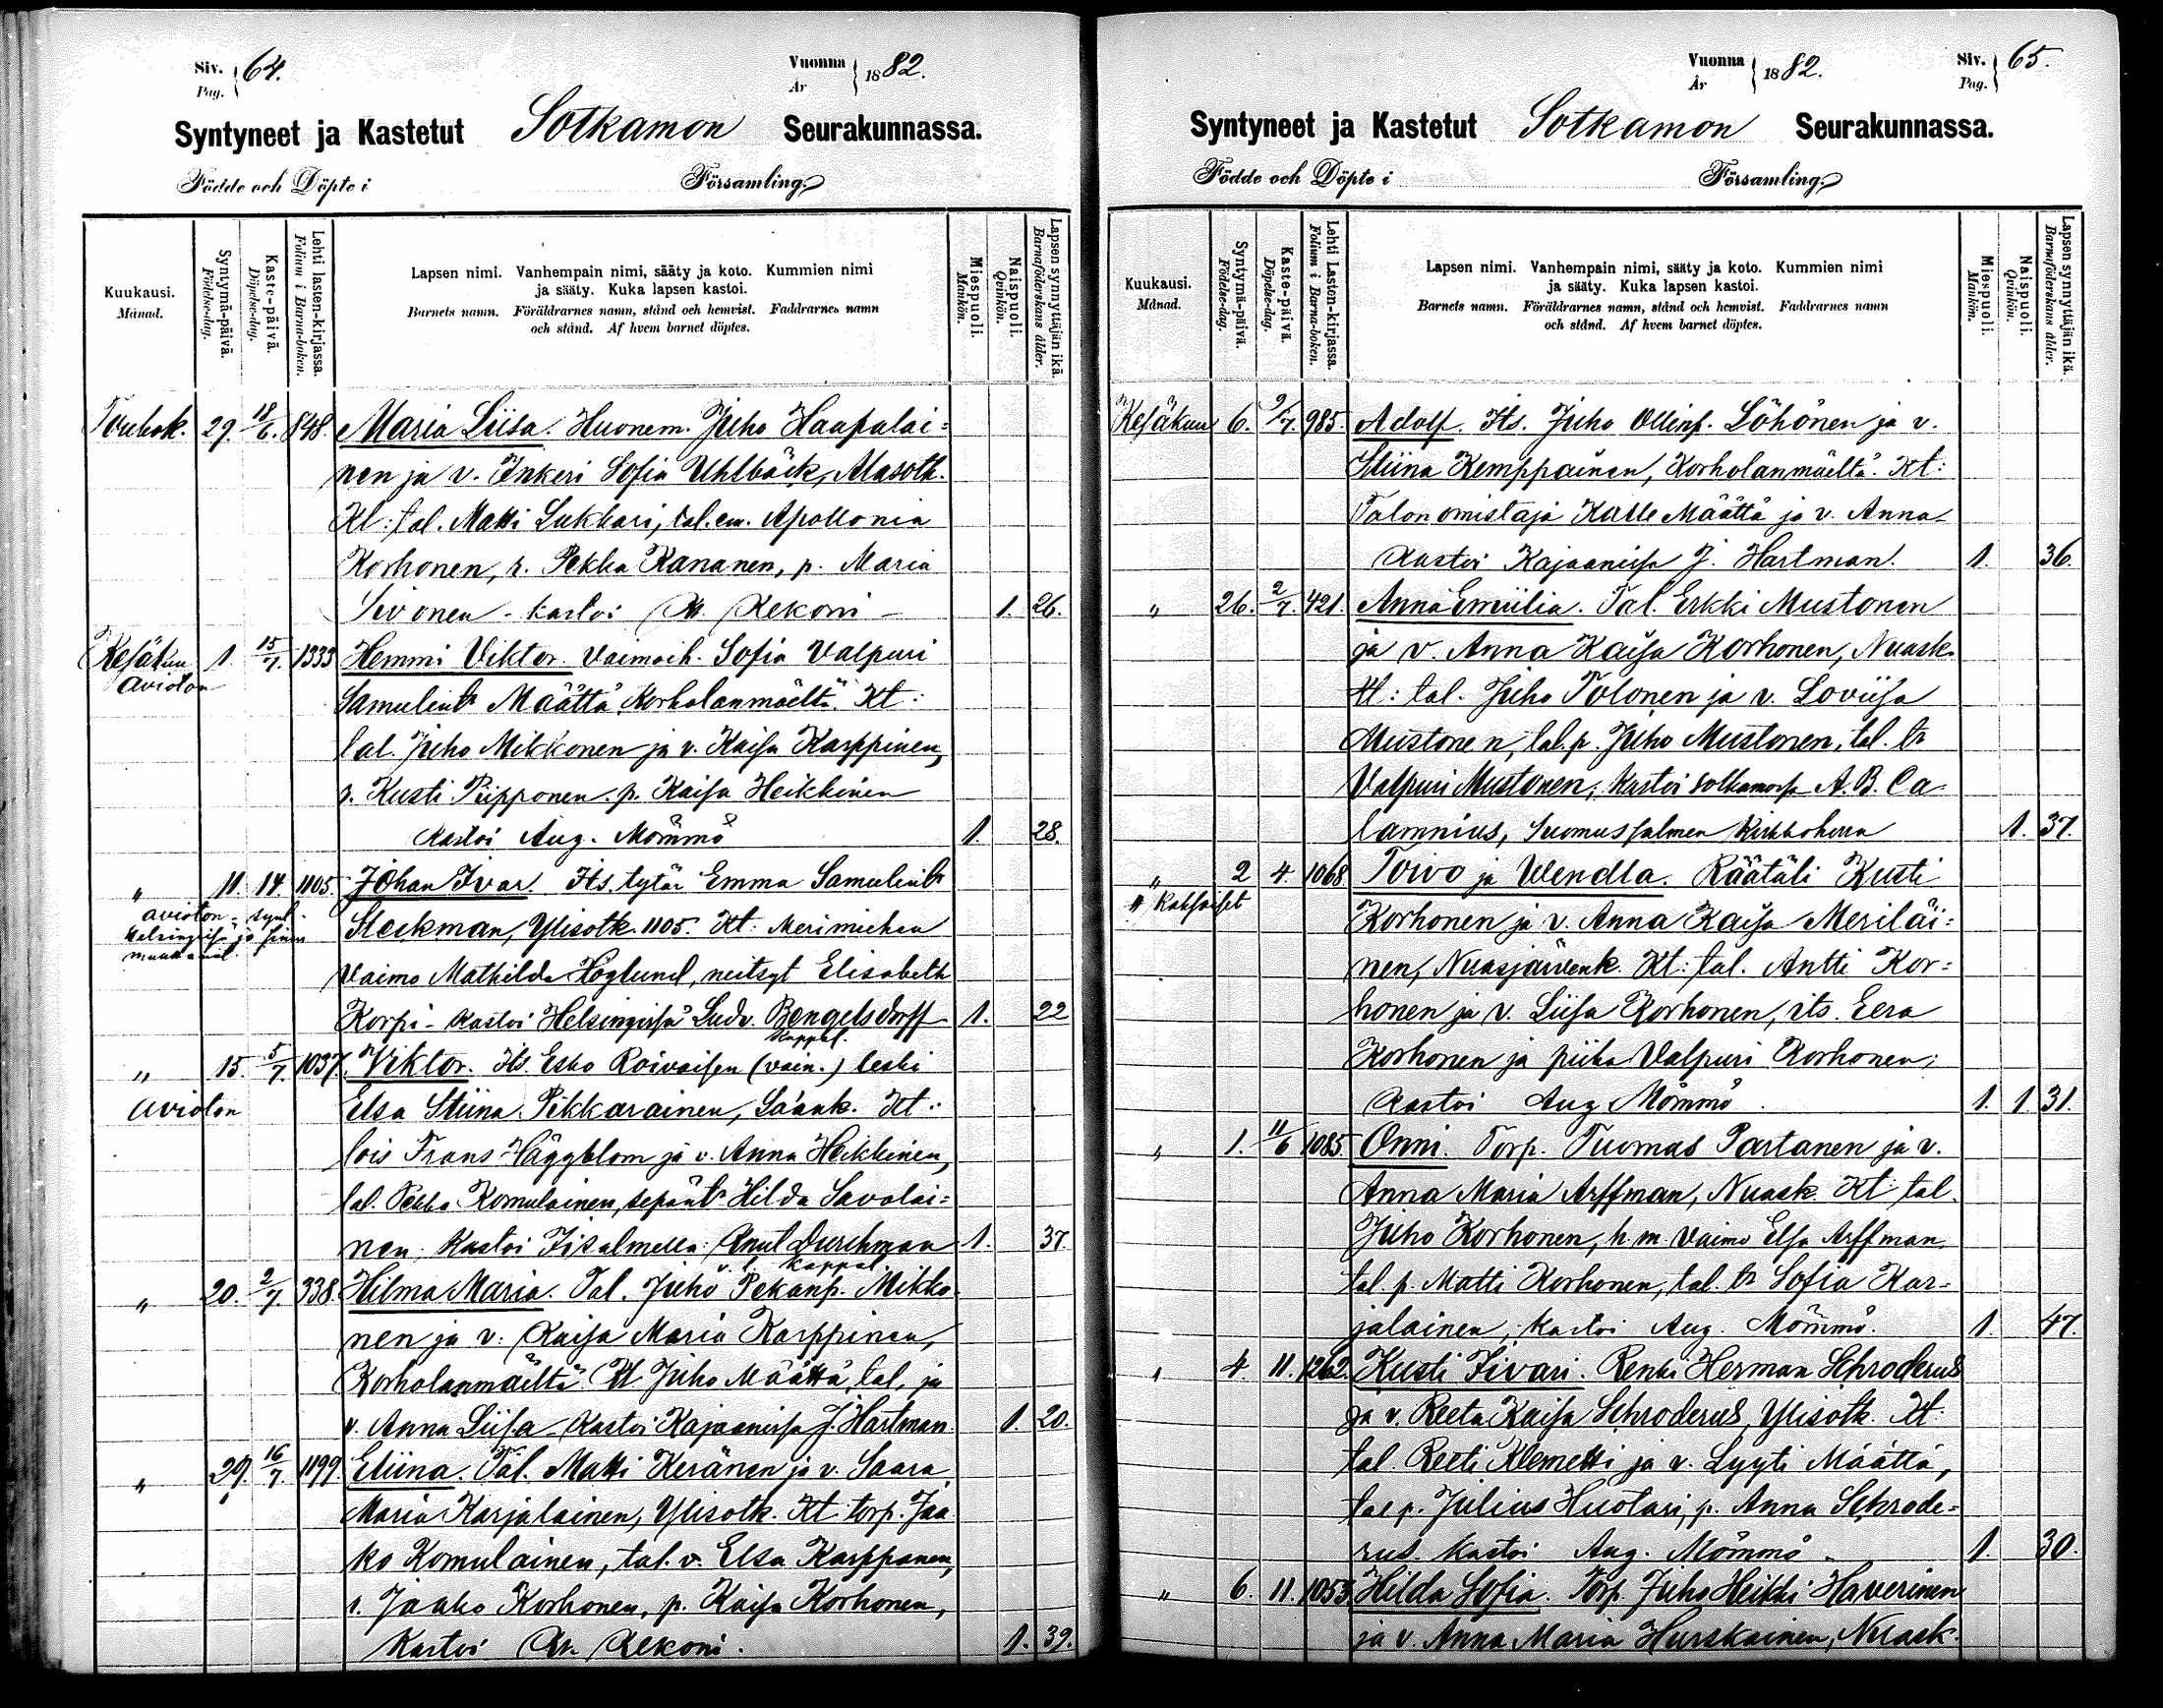 Siv. 64.
Pag.
Vuonna 1882.
År
Syntyneet ja Kastetut Sotkamon Seurakunnassa.
Födde och Döpte i Församling.
Kuukausi.
Månad.
Syntymä-päivä.
Födelse-dag.
Kaste-päivä.
Döpelse-dag.
Lehti lasten-kirjassa.
Folium i Barna-boken.
Lapsen nimi. Vanhempain nimi, sääty ja koto. Kummien nimi
ja sääty. Kuka lapsen kastoi.
Barnets namn. Föräldrarnes namn, stånd och hemvist. Faddrarnes namn
och stånd. Af hvem barnet döptes.
Miespuoli.
Mankön.
Naispuoli.
Qvinkön.
Lapsen synnyttäjän ikä.
Barnaföderskans ålder.
Toukok. 29. 18/6. 848. Maria Liisa. Huonem. Juho Haapalai=
nen ja v. Inkeri Sofia Uhlbäck, Alasotk.
Kt: tal. Matti Lukkari, tal. em. Apollonia
Korhonen, r. Pekka Kananen, p. Maria
Sivonen - kastoi Kr. Rekoni - 1. 26.
Kesäkuu 1. 15/7. 1333 Hemmi Viktor. Vaimoih. Sofia Valpuri
Avioton
Samulintr Määttä Korholanmäeltä. Kt:
tal. Juho Mikkonen ja v. Kaisa Karppinen,
r. Kusti Piipponen. p. Kaisa Heikkinen
Kastoi Aug. Mömmö 1. 28.
" 11. 14. 1105. Johan Ivar. Its. tytär Emma Samulintr
avioton - synt.
Helsingissä ja sinne
muuttanut.
Steckman, Ylisotk. 1105. Kt: Merimiehen
Vaimo Mathilda Höglund, neitsyt Elisabeth
Korpi - kastoi Helsingissä Ludv. Bengelsdorff 1. 22
Kappal.
" 15. 5/7. 1037. Viktor. Its. Esko Roivaisen (vain.) leski
avioton
Elsa Stiina Pikkarainen, Saank. Kt:
lois Frans Häggblom ja v. Anna Heikkinen,
tal. Pekka Komulainen, sepäntr Hilda Savolai=
nen. Kastoi Iisalmella: Knut Durchman 1. 37.
v. t. kappal
" 20. 2/7. 338. Hilma Maria. Tal. Juho Pekanp. Mikko-
nen ja v. Kaisa Maria Karppinen,
Korholanmäeltä Kt Juho Määttä, tal. ja
v. Anna Liisa - Kastoi Kajaanissa J. Hartman. 1. 20.
" 29. 16/7. 1199 Eliina. Tal. Matti Keränen ja v. Saara
Maria Karjalainen, Ylisotk. Kt torp. Jaa
ko Komulainen, tal. v. Elsa Karppanen,
r. Jaako Korhonen, p. Kaisa Korhonen,
Kastoi Kr. Rekoni. 1. 39.
Vuonna 1882.
År
Siv. 65.
Pag.
Syntyneet ja Kastetut Sotkamon Seurakunnassa.
Födde och Döpte i Församling.
Kuukausi.
Månad.
Syntymä-päivä.
Födelse-dag.
Kaste-päivä.
Döpelse-dag.
Lehti Lasten-kirjassa.
Folium i Barna-boken.
Lapsen nimi. Vanhempain nimi, sääty ja koto. Kummien nimi
ja sääty. Kuka lapsen kastoi.
Barnets namn. Föräldrarnes namn, stånd och hemvist. Faddrarnes namn
och stånd. Af hvem barnet döptes.
Miespuoli.
Mankön.
Naispuoli.
Qvinkön.
Lapsen synnyttäjän ikä.
Barnaföderskans ålder.
Kesäkuu 6. 2/7. 985. Adolf. Its. Juho Ollinp. Löhönen ja v.
Stiina Kemppainen, Korholanmäeltä. Kt:
Talonomistaja Kalle Määttä ja v. Anna
Kastoi Kajaanissa J. Hartman. 1. 36.
" 26. 2/7. 421. Anna Emiilia. Tal. Erkki Mustonen
ja v. Anna Kaisa Korhonen, Nuask.
Kt: tal. Juho Tolonen ja v. Loviisa
Mustonen, tal. p. Juho Mustonen, tal. tr
Valpuri Mustonen; Kastoi Sotkamossa A. B. Ca
lamnius, Suomussalmen Kirkkoherra 1. 37.
" 2 4. 1068 Toivo ja Wendla. Räätäli Kusti
" Kaksoiset
Korhonen ja v. Anna Kaisa Meriläi=
nen, Nuasjärvenk. Kt: tal. Antti Kor=
honen ja v. Liisa Korhonen, its. Eera
Korhonen ja piika Valpuri Korhonen;
Kastoi Aug Mömmö. 1. 1. 31.
" 1. 11/6 1085. Onni. Torp. Tuomas Partanen ja v.
Anna Maria Arffman, Nuask. Kt tal.
Juho Korhonen, h. m. Vaimo Elsa Arffman,
tal. p. Matti Korhonen, tal. tr Sofia Kar=
jalainen; kastoi Aug. Mömmö. 1. 47.
" 4 11. 1262. Kusti Iivari. Renki Herman Schroderus
ja v. Reeta Kaisa Schroderus, Ylisotk. Kt:
tal. Reeti Klemetti ja v. Lyyti Määttä,
tal p. Julius Huotari, p. Anna Schrode=
rus. kastoi Aug. Mömmö. 1. 30.
" 6. 11. 1053. Hilda Sofia. Torp. Juho Heikki Haverinen
ja v. Anna Maria Hurskainen, Nuask.